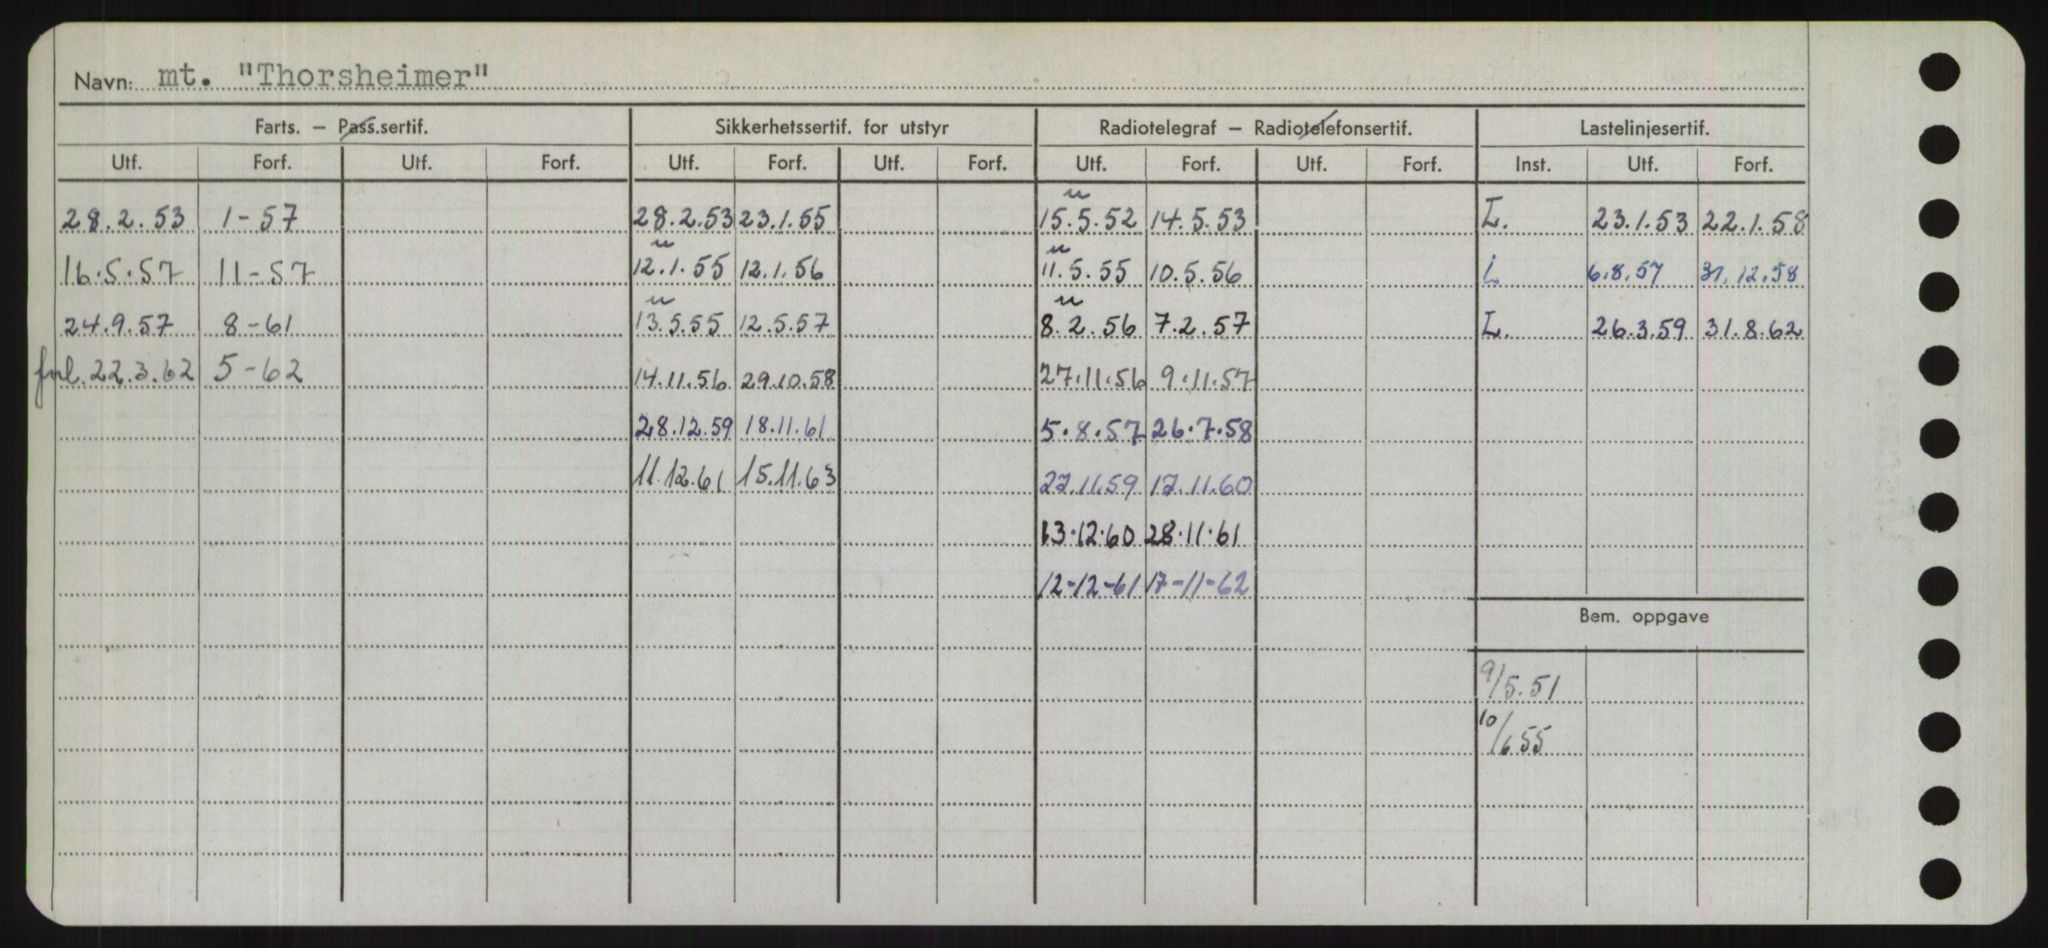 Navn: mt. "Thorsheimer"
Farts. – Pass.sertif. Sikkerhetssertif. for utstyr Radiotelegraf – Radiotelefonsertif. Lastelinjesertif.
Utf. Forf. Utf. Forf. Utf. Forf. Utf. Forf. Utf. Forf. Utf. Forf. Inst. Utf. Forf.
28.2.53 1-57 28.2.53 23.1.55 u 15.5.52 14.5.53 L. 23.1.53 22.1.58
16.5.57 11-57 u 12.1.55 12.1.56 u 11.5.55 10.5.56 L 6.8.57 31.12.58
24.9.57 8-61 u 13.5.55 12.5.57 u 8.2.56 7.2.57 L. 26.3.59 31.8.62
fnl. 22.3.62 5-62 14.11.56 29.10.58 27.11.56 9.11.57
28.12.59 18.11.61 5.8.57 26.7.58
11.12.61 15.11.63 27.11.59 17.11.60
13.12.60 28.11.61
12-12-61 17-11-62
Bem. oppgave
9/5.51
10/6 55